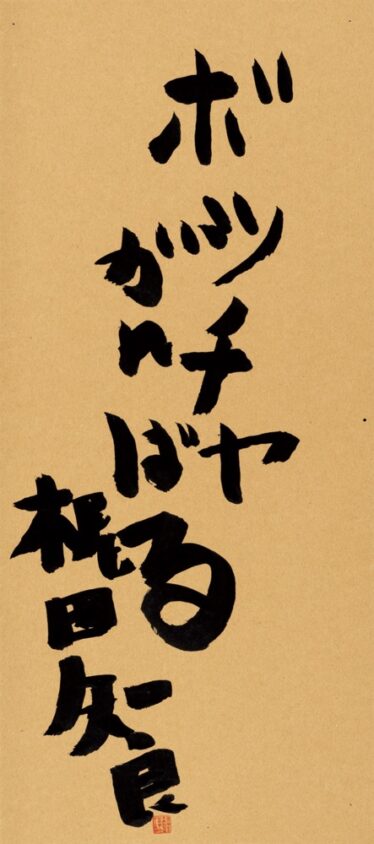 ボッチャ
がんばる
梶田知良